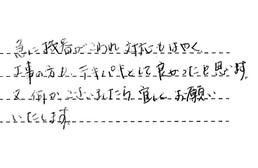 急に機器がこわれ対応もはやく
工事の方も、テキパキとして良かったと思います。
又何かございましたら宜しくお願い
いたします。